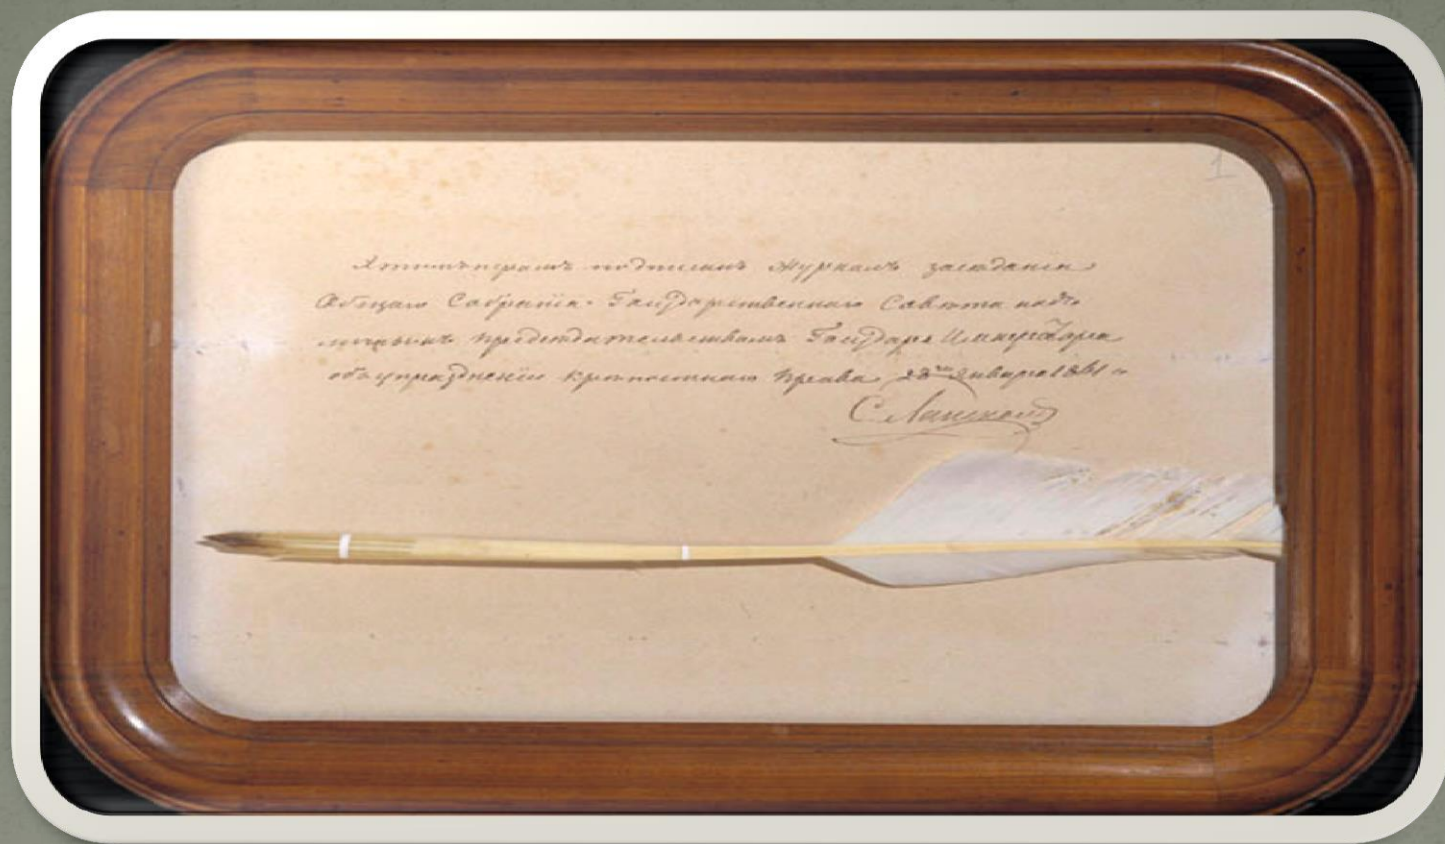 1
Этимъ перомъ подписанъ Журналъ заседанія
Общаго Собранія Государственнаго Совѣта подъ
личнымъ предсѣдательствомъ Государя Императора
объ упраздненіи крѣпостнаго права 28го Января 1861 г.
С. Ланской